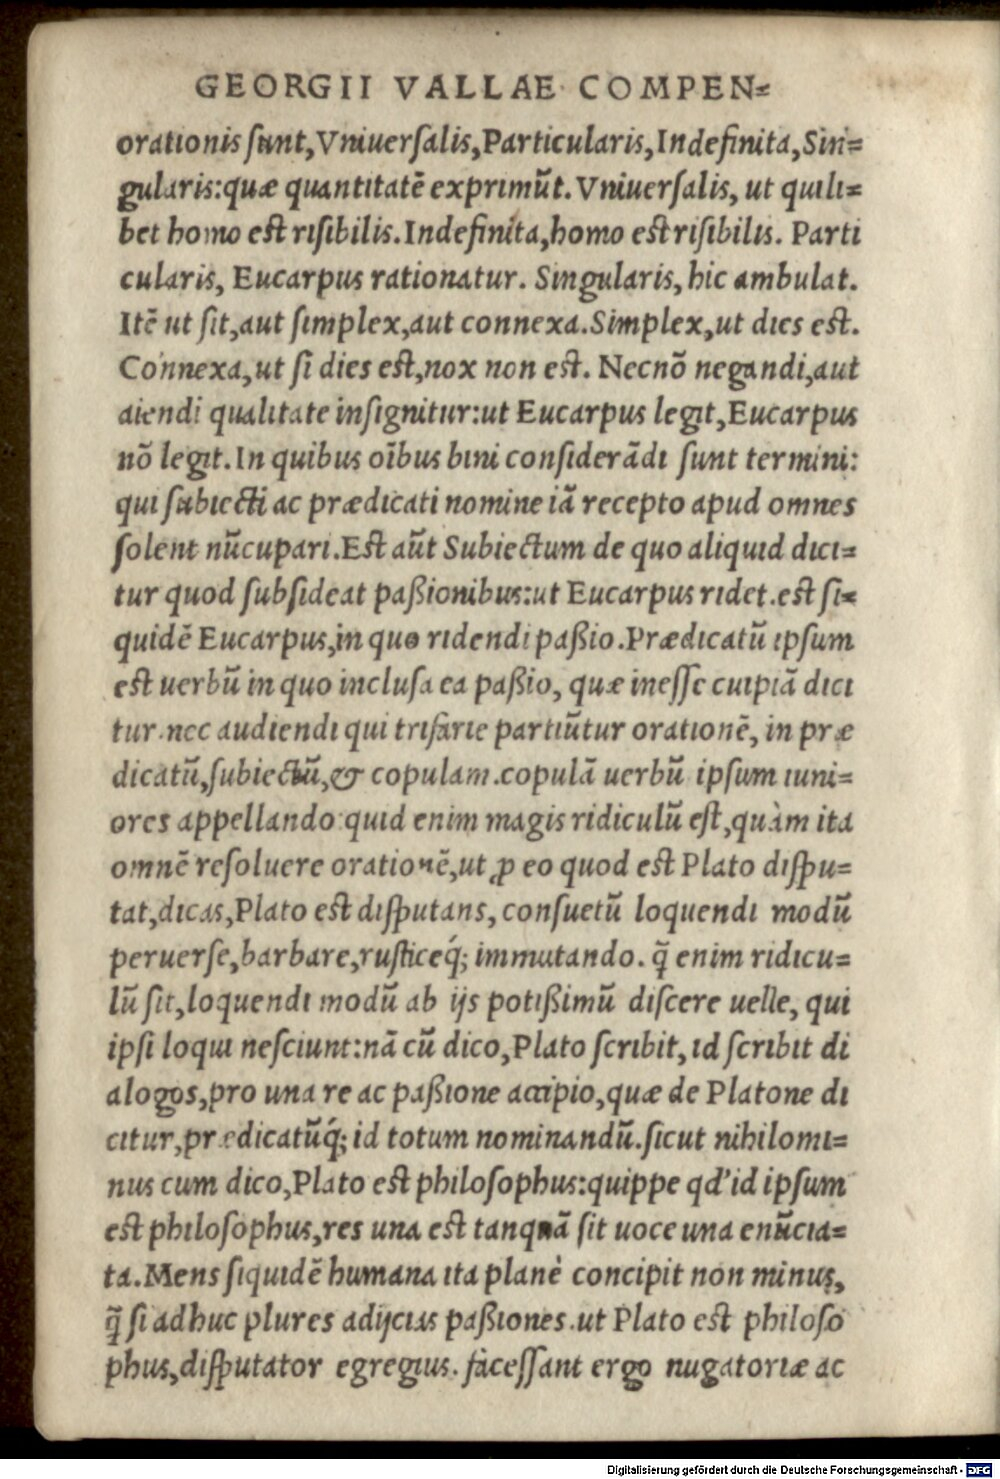 GEORGII VALLAE COMPEN⸗
orationis ſunt,Vniuerſalis,Particularis,Indefinita,Sin⸗
gularis:quæ quantitatē exprimūt.Vniuerſalis, ut quili⸗
bet homo eſt riſibilis.Indefinita,homo eſt riſibilis. Parti
cularis, Eucarpus rationatur. Singularis, hic ambulat.
Itē ut ſit,aut ſimplex,aut connexa.Simplex,ut dies eſt.
Connexa,ut ſi dies eſt,nox non eſt. Necnō negandi,aut
aiendi qualitate inſignitur:ut Eucarpus legit,Eucarpus
nō legit.In quibus oībus bini conſiderādi ſunt termini:
qui ſubiecti ac prædicati nomine iā recepto apud omnes
ſolent nūcupari.Eſt aūt Subiectum de quo aliquid dici⸗
tur quod ſubſideat paßionibus:ut Eucarpus ridet.eſt ſi⸗
quidē Eucarpus,in quo ridendi paßio.Prædicatū ipſum
eſt uerbū in quo incluſa ea paßio, quæ ineſſe cuipiā dici
tur.nec audiendi qui trifarie partiūtur orationē, in præ
dicatū,ſubiectū,& copulam.copulā uerbū ipſum iuni⸗
ores appellando:quid enim magis ridiculū eſt,quàm ita
omnē reſoluere orationē,ut ꝓ eo quod eſt Plato diſpu⸗
tat,dicas,Plato eſt diſputans, conſuetū loquendi modū
peruerſe,barbare,ruſticeq́; immutando. q̄ enim ridicu⸗
lū ſit,loquendi modū ab ijs potißimū diſcere uelle, qui
ipſi loqui neſciunt:nā cū dico,Plato ſcribit, id ſcribit di
alogos,pro una re ac paßione accipio,quæ de Platone di
citur,prædicatūq́; id totum nominandū.ſicut nihilomi⸗
nus cum dico,Plato eſt philoſophus:quippe qd' id ipſum
eſt philoſophus,res una eſt tanquā ſit uoce una enūcia⸗
ta.Mens ſiquidē humana ita planè concipit non minus,
q̄ ſi adhuc plures adijcias paßiones.ut Plato eſt philoſo
phus,diſputator egregius. faceſſant ergo nugatoriæ ac
Digitalisierung gefördert durch die Deutsche Forschungsgemeinschaft · DFG